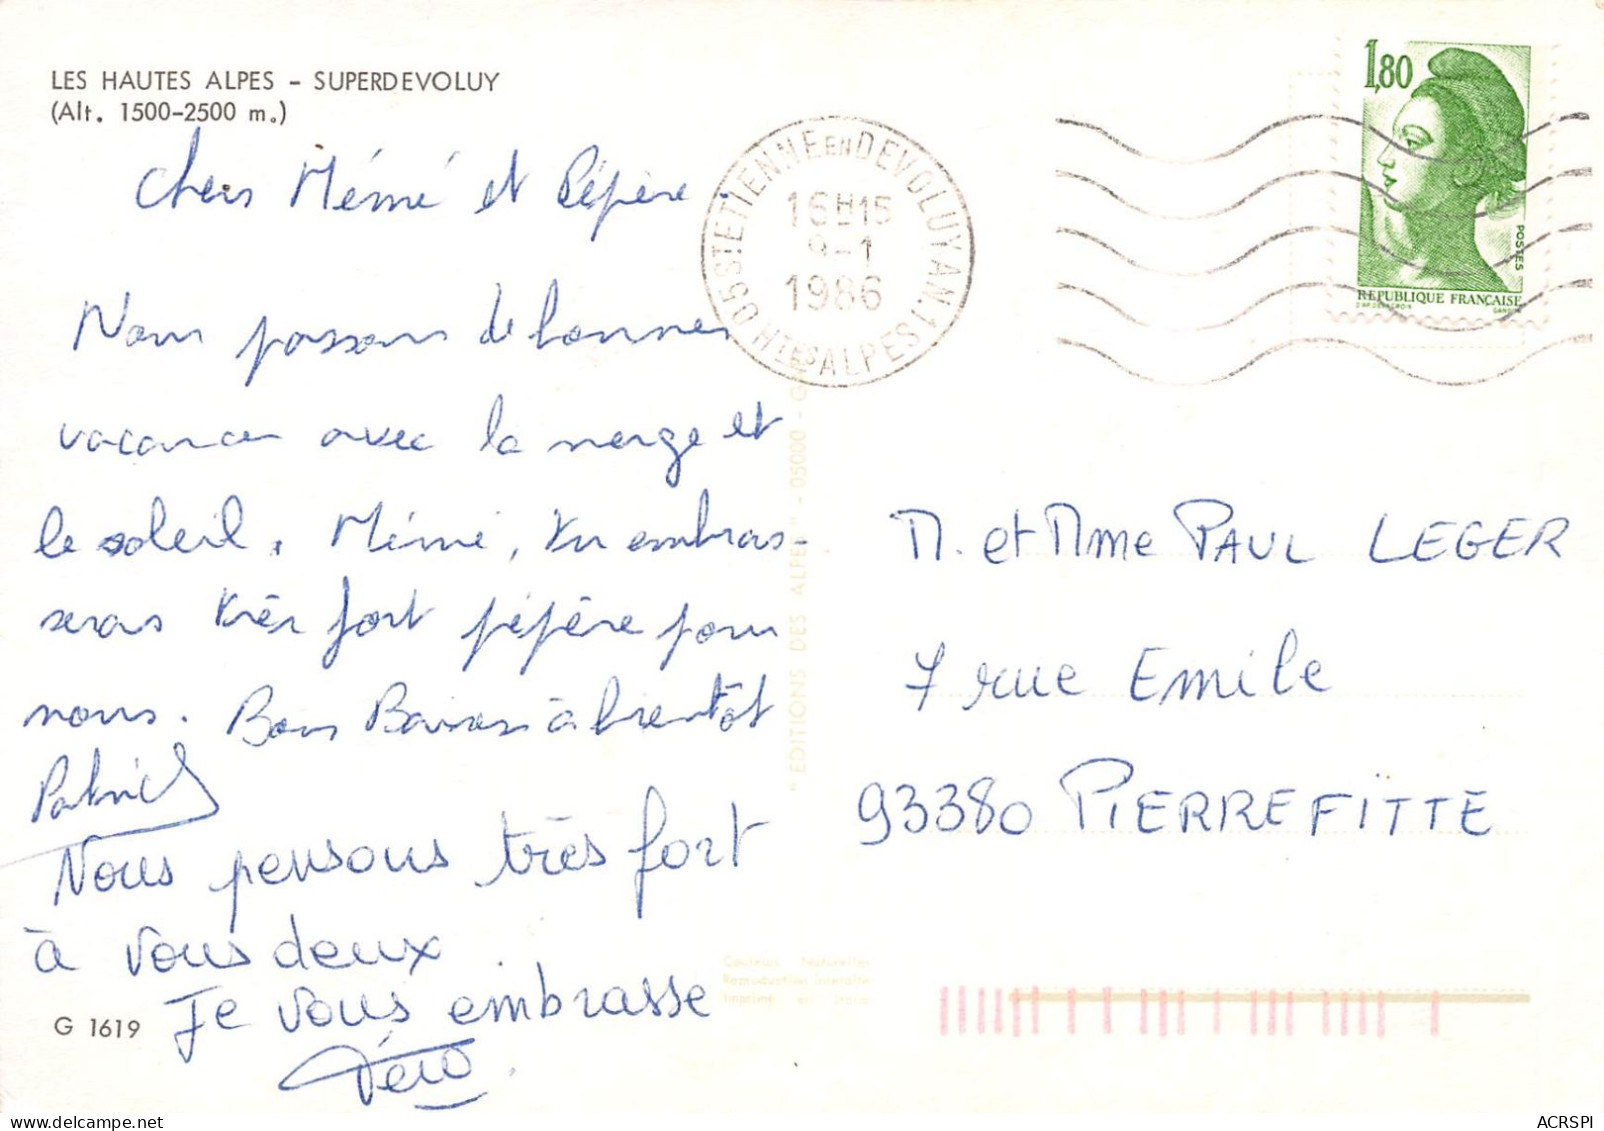 LES HAUTES ALPES - SUPERDEVOLUY
(Alt. 1500-2500 m.)
Chers Mémé et Pépère.
Nous passons de bonnes
vacances avec la neige et
le soleil. Mémé, tu embras-
seras très fort pépère pour
nous. Bons Baisers à bientôt
Patrick
Nous pensons très fort
à vous deux.
Je vous embrasse
Véro
G 1619
05 ST ETIENNE EN DEVOLUY AN.1
16H15
9-1
1986
HTES ALPES
1,80
POSTES
REPUBLIQUE FRANÇAISE
D'AP. DELACROIX
GANDON
"EDITIONS DES ALPES" - 05000 -
M. et Mme PAUL LEGER
7 rue Emile
93380 PIERREFITTE
Couleurs Naturelles
Reproduction interdite
Imprimé en
ACRSPI